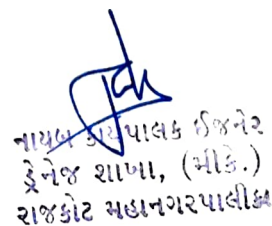 નાયબ કાર્યપાલક ઈજનેર
ડ્રેનેજ શાખા, (મીકે.)
રાજકોટ મહાનગરપાલીકા